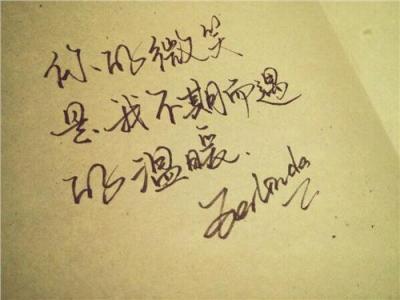 你的微笑
是我不期而遇
的溫暖.